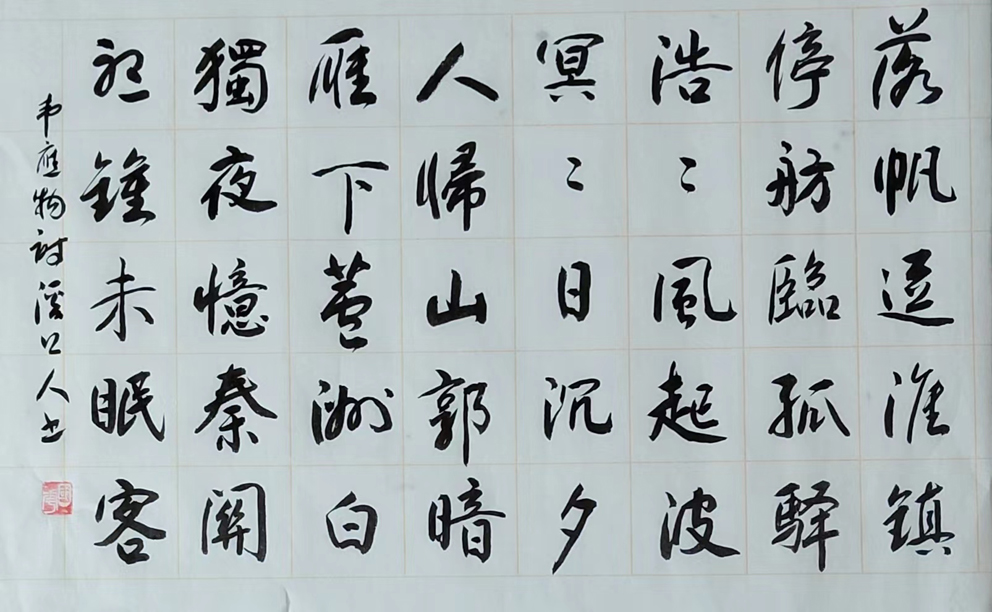 落帆逗淮鎮
停舫臨孤驛
浩〻風起波
冥〻日沉夕
人歸山郭暗
雁下蘆洲白
獨夜憶秦關
聽鐘未眠客
韦應物詩 溪口人书